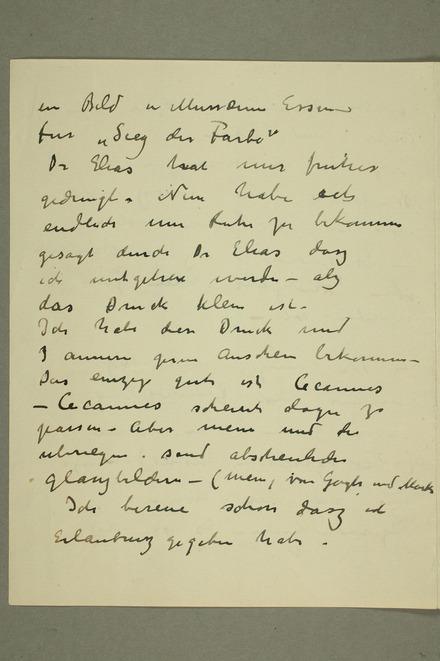 ein Bild in Museum Essen
fur „Sieg der Farbe"
Dr Elias hat mir früher
gedrengt. Nun habe ich
endlich um Ruhe zu bekommen
gesagt durch Dr Elias dasz
ich mitgehen werde – als
das Druck klein ist.
Ich habe den Druck und
3 annere zum Ansehen bekommen –
Das einzig gute ist Cecannes
– Cecannes scheint dazu zu
passen – Aber mein und die
ubrigen. send abscheuliche
glanzbilder – (mein, van Gogh, und
Ich bereue schon dasz ich
Erlaubnisz gegeben habe.